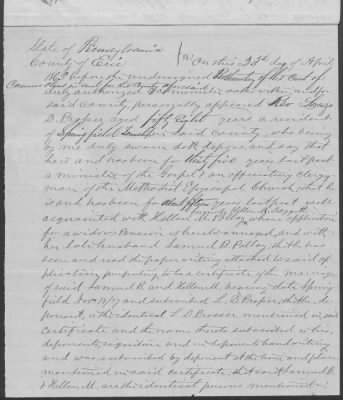 State of Pennsylvania
County of Erie } SS: On this 23d day of April
186 before the undersigned Prothonotary of the Court of
Common Pleas in and for the County aforesaid
duly authorized to administer oaths within and for
said County, personally appeared Rev Lorenzo
D. Prosser aged fifty eight years a resident
of Springfield in said County, who being
by me duly sworn doth depose and say that
he is and has been for thirty five years last past
a minister of the Gospel & an officiating clergy-
man of the Methodist Episcopal Church, that he
is and has been for about fifteen years last past well
acquainted with Hellen M. Pelley whose application
for a widow's Pension is hereto annexed, and with
her late husband Samuel B. Pelley, that he has
seen and read the paper writing attached to said ap-
plication purporting to be a certificate of the marriage
of said Samuel B. and Hellen M. bearing date Spring
field Nov and subscribed L. D. Prosser, that he, de-
ponent, is the identical L. D. Prosser mentioned in said
certificate and the name thereto subscribed is his,
deponents, signature and in deponents hand writing
and was subscribed by deponent at the time and place
mentioned in said certificate, that said Samuel B.
& Hellen M. are the identical persons mentioned in